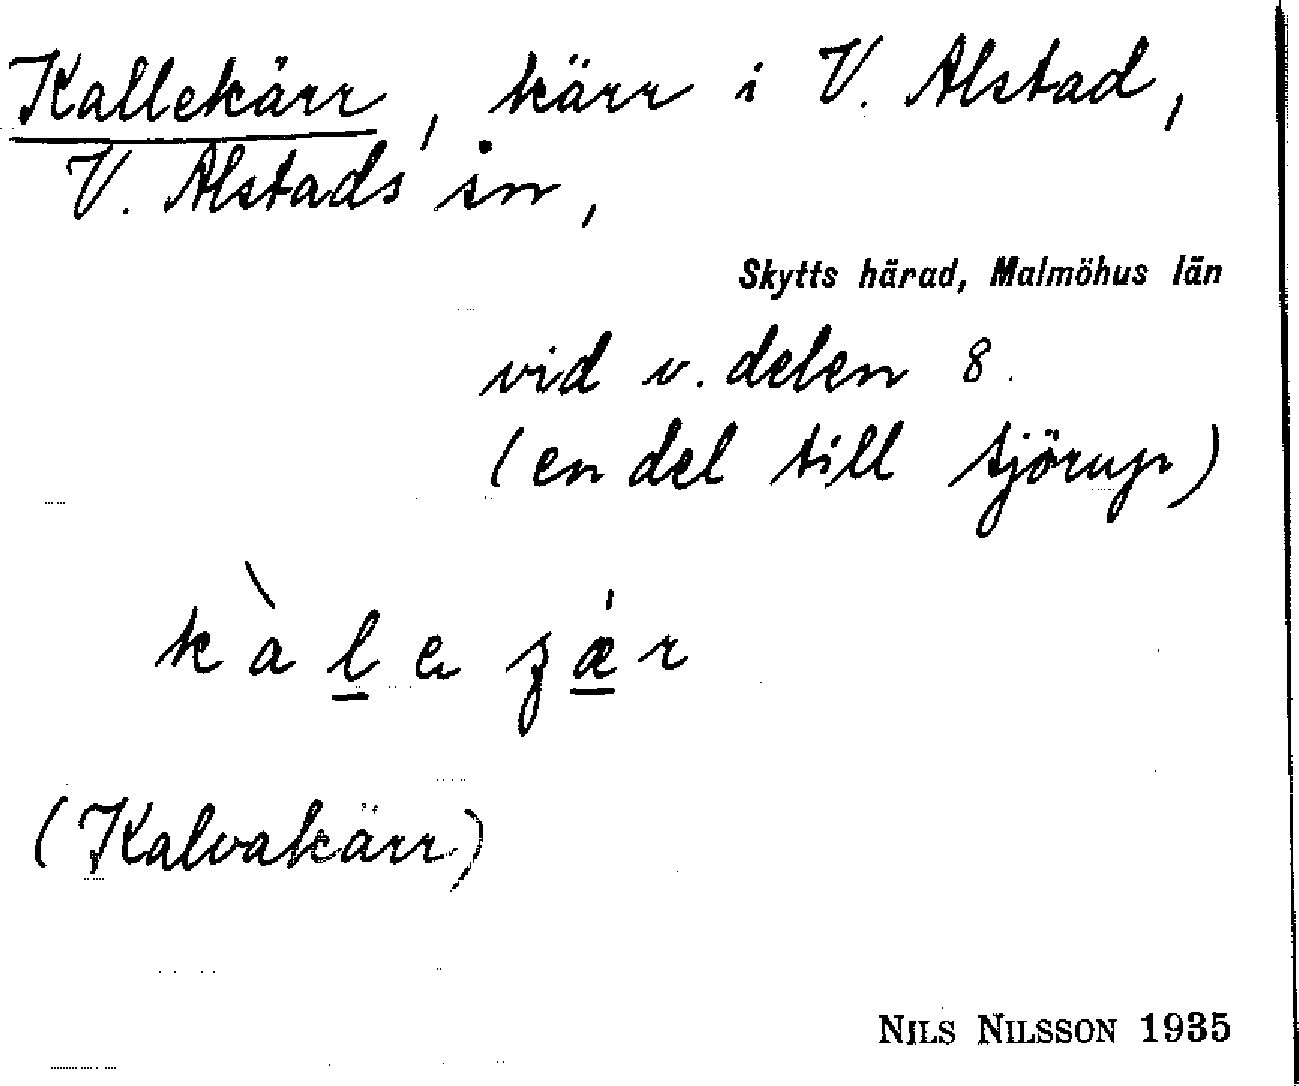 Kallekärr, kärr i V. Alstad,
V. Alstads sn,
Skytts härad, Malmöhus län
vid v. delen 8.
(en del till Sjörup)
(Kalvakärr)
NILS NILSSON 1935